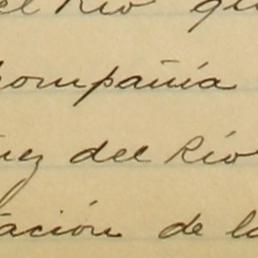 el Río
ompañía
uez del Río
tación de la